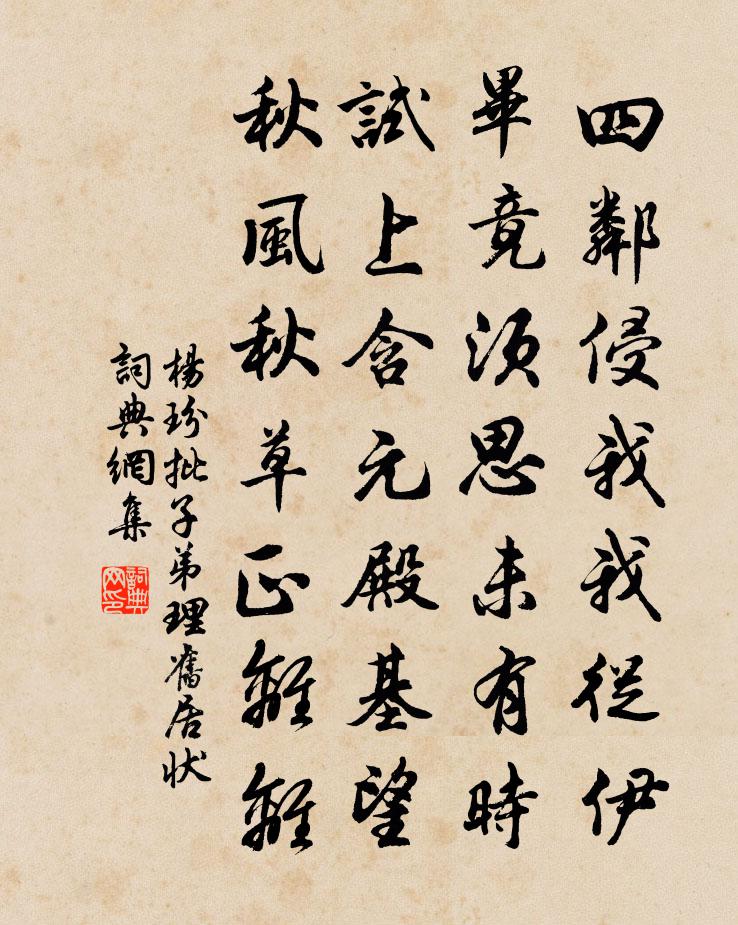 四鄰侵我我從伊
畢竟須思未有時
試上含元殿基望
秋風秋草正離離
楊玢批子弟理舊居狀
詞典網集
詞典網印